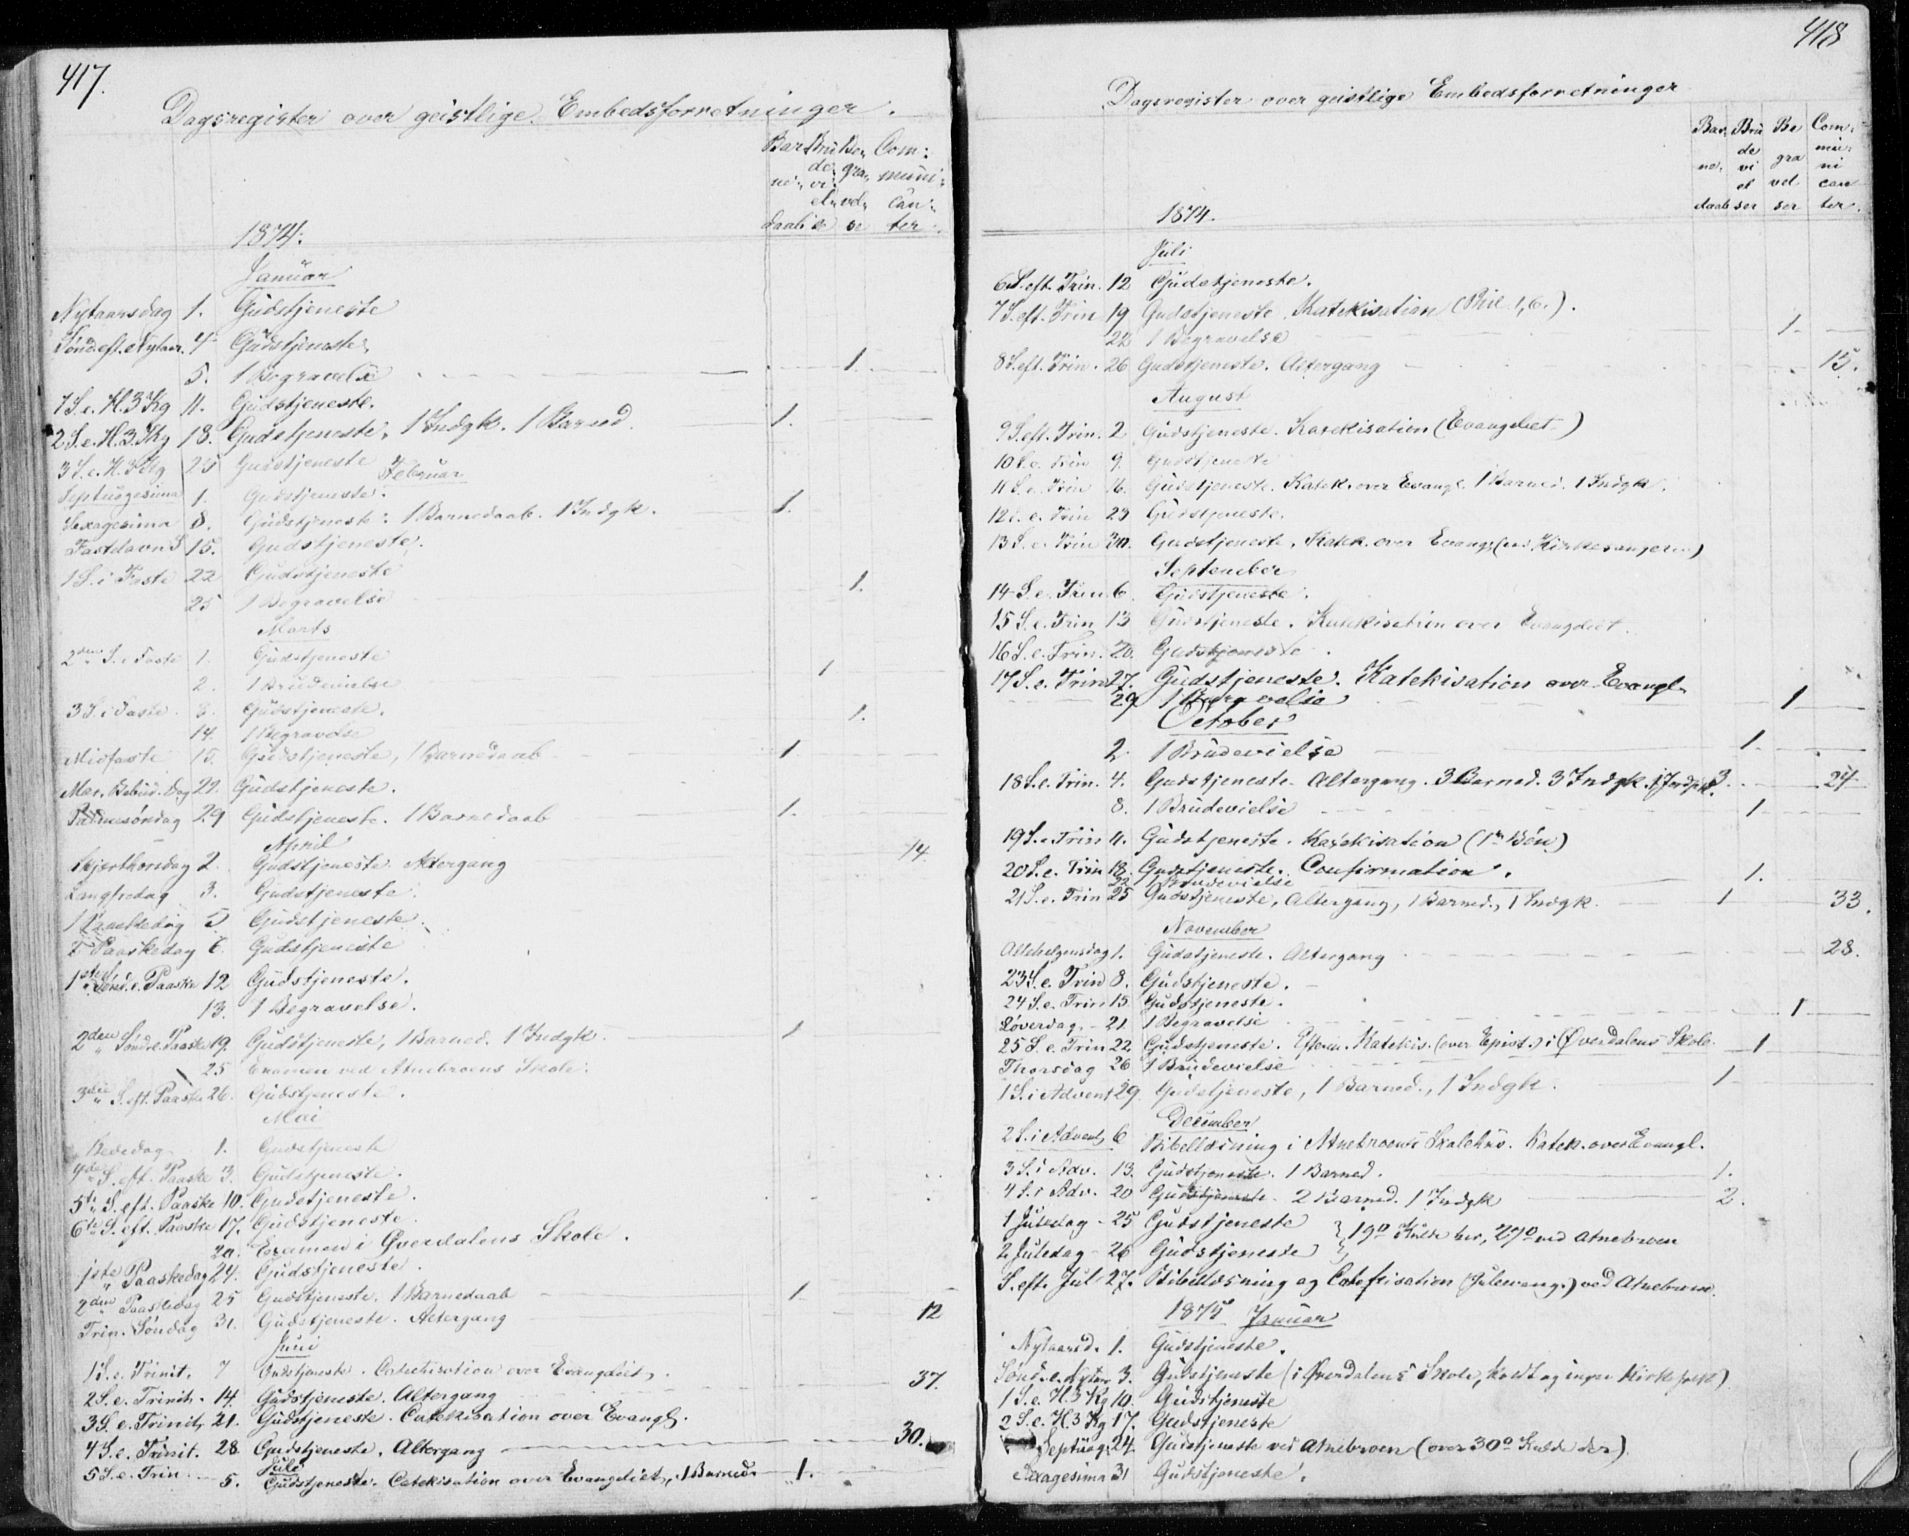 417.
Dagsregister over geistlige Embedsforretninger.
Bar- Bru Be- Com-
de- gra- muni-
ne- vi-
el- vel- can-
daab se se ter.
1874.
Januar
Nytaarsdag 1. Gudstjeneste
Sønd. eft. Nytaar. 4 Gudstjeneste.
5. 1 Begravelse 1.
1 S. e. H. 3 Kg 11. Gudstjeneste.
2 S. e. H. 3. Kg 18. Gudstjeneste. 1 Indgk. 1 Barned. 1.
3 S. e. H. 3 Kg 25 Gudstjeneste
Februar
Septuagesima 1. Gudstjeneste.
Sexagesima 8. Gudstjeneste. 1 Barnedaab. 1 Indgk. 1.
Fastelavns S 15. Gudstjeneste.
1 S. i Faste 22 Gudstjeneste
25 1 Begravelse 1.
Marts
2den S. i Faste 1. Gudstjeneste
2. 1 Brudevielse 1
3 S. i Faste. 8. Gudstjeneste.
14. 1 Begravelse 1.
Midfaste 15. Gudstjeneste, 1 Barnedaab 1.
Mar. Bebud. Dag 22. Gudstjeneste.
Palmesøndag 29 Gudstjeneste. 1 Barnedaab 1.
April
Skjærthorsdag 2. Gudstjeneste Altergang 14.
Langfredag 3. Gudstjeneste.
1 Paaskedag 5 Gudstjeneste.
2 Paaskedag 6. Gudstjeneste
1ste Sønd. e. Paaske 12 Gudstjeneste.
13. 1 Begravelse.
2den Sønd. e. Paaske 19. Gudstjeneste, 1 Barned. 1 Indgk. 1
25 Examen ved Atnebroens Skole.
3die S. eft. Paaske 26. Gudstjeneste.
Mai
Bededag 1. Gudstjeneste
4de S. eft. Paaske 3. Gudstjeneste.
5te S. eft. Paaske 10. Gudstjeneste.
6te S. eft. Paaske 17. Gudstjeneste.
20. Examen i Øverdalens Skole.
1ste Paaskedag 24. Gudstjeneste.
2den Paaskedag 25 Gudstjeneste. 1 Barnedaab 1.
Trin. Søndag 31. Gudstjeneste. Altergang 12
Juni
1 S. e. Trinit. 7 Gudstjeneste. Catechisation over Evangeliet.
2 S. e. Trinit. 14. Gudstjeneste. Altergang 37.
3 S. e. Trinit. 21. Gudstjeneste. Catekisation over Evangl.
4 S. e. Trinit. 28 Gudstjeneste. Altergang 30.
Juli
5 S. e. Trin. 5. Gudstjeneste. Catekisation over Evangeliet, 1 Barned. 1.
418
Dagsregister over geistlige Embedsforretninger
Bar- Bru Be Com-
de mu-
ne- vi gra ni
el vel can
daab ser ser ter.
1874.
Juli
6 S. eft. Trin. 12 Gudstjeneste.
7 S. eft. Trin 19 Gudstjeneste. Katekisation (Phil 1,6.).
22 1 Begravelse 1.
8 S. eft. Trin. 26 Gudstjeneste. Altergang 15.
August
9 S. eft. Trin. 2 Gudstjeneste. Katekisation (Evangeliet)
10 S. e. Trin 9. Gudstjeneste
11 S. e. Trin 16. Gudstjeneste. Katek. over Evangl. 1 Barned. 1 Indgk.
12 S. e. Trin 23 Gudstjeneste.
13 S. e. Trin 30. Gudstjeneste. Katek. over Evang.
September
14 S. e. Trin 6. Gudstjeneste.
15 S. e. Trin 13 Gudstjeneste. Katekisation over Evangeliet.
16 S. e. Trin. 20. Gudstjeneste.
17 S. e. Trin 27. Gudstjeneste. Katekisation over Evangl.
29 1 Begravelse 1
October
2. 1 Brudevielse 1.
18 S. e. Trin. 4. Gudstjeneste. Altergang. 3 Barned. 3 Indgk. 3 24
8. 1 Brudevielse 1
19 S. e. Trin 11. Gudstjeneste. Katekisation (1ste Bøn)
20 S. e. Trin 18. Gudstjeneste. Confirmation.
22 1 Brudevielse 1.
21 S. e. Trin 25 Gudstjeneste, Altergang, 1 Barned., 1 Indgk. 1 33.
November
Allehelgensdag 1. Gudstjeneste. Altergang 28.
23 S. e. Trin 8. Gudstjeneste.
24 S. e. Trin 15 Gudstjeneste.
Løverdag 21. 1 Begravelse 1
25 S. e. Trin 22 Gudstjeneste. Efterm. Katekis. (over Epist.) i Øverdalens Skole.
Thorsdag 26 1 Brudevielse 1
1 S. i Advent 29. Gudstjeneste, 1 Barned., 1 Indgk. 1
December
2 S. i Advent 6 Bibellæsning i Atnebroens Skolehus. Katek. over Evangl.
3 S. i Adv. 13. Gudstjeneste. 1 Barned. 1.
4 S. i Adv. 20 Gudstjeneste. 2 Barned. 1 Indgk 2.
1 Juledag 25 Gudstjeneste } 19° Kulde her, 27° ved Atnebroen
2 Juledag 26 Gudstjeneste
S. eft. Jul 27. Bibellæsning og Catekisation (Juleevang.) ved Atnebroen.
1875 Januar
Nytaarsd. 1. Gudstjeneste.
Sønd. e. Nytaar 3. Gudstjeneste (i Øverdalens Skole, Koldt og ingen Kirkfolk)
1 S. e. H. 3 Kg 10. Gudstjeneste
2 S. e. H. 3 Kg 17. Gudstjeneste
Septuag. 24. Gudstjeneste ved Atnebroen (over 30° Kulde der)
Sexagesima 31 Gudstjeneste.